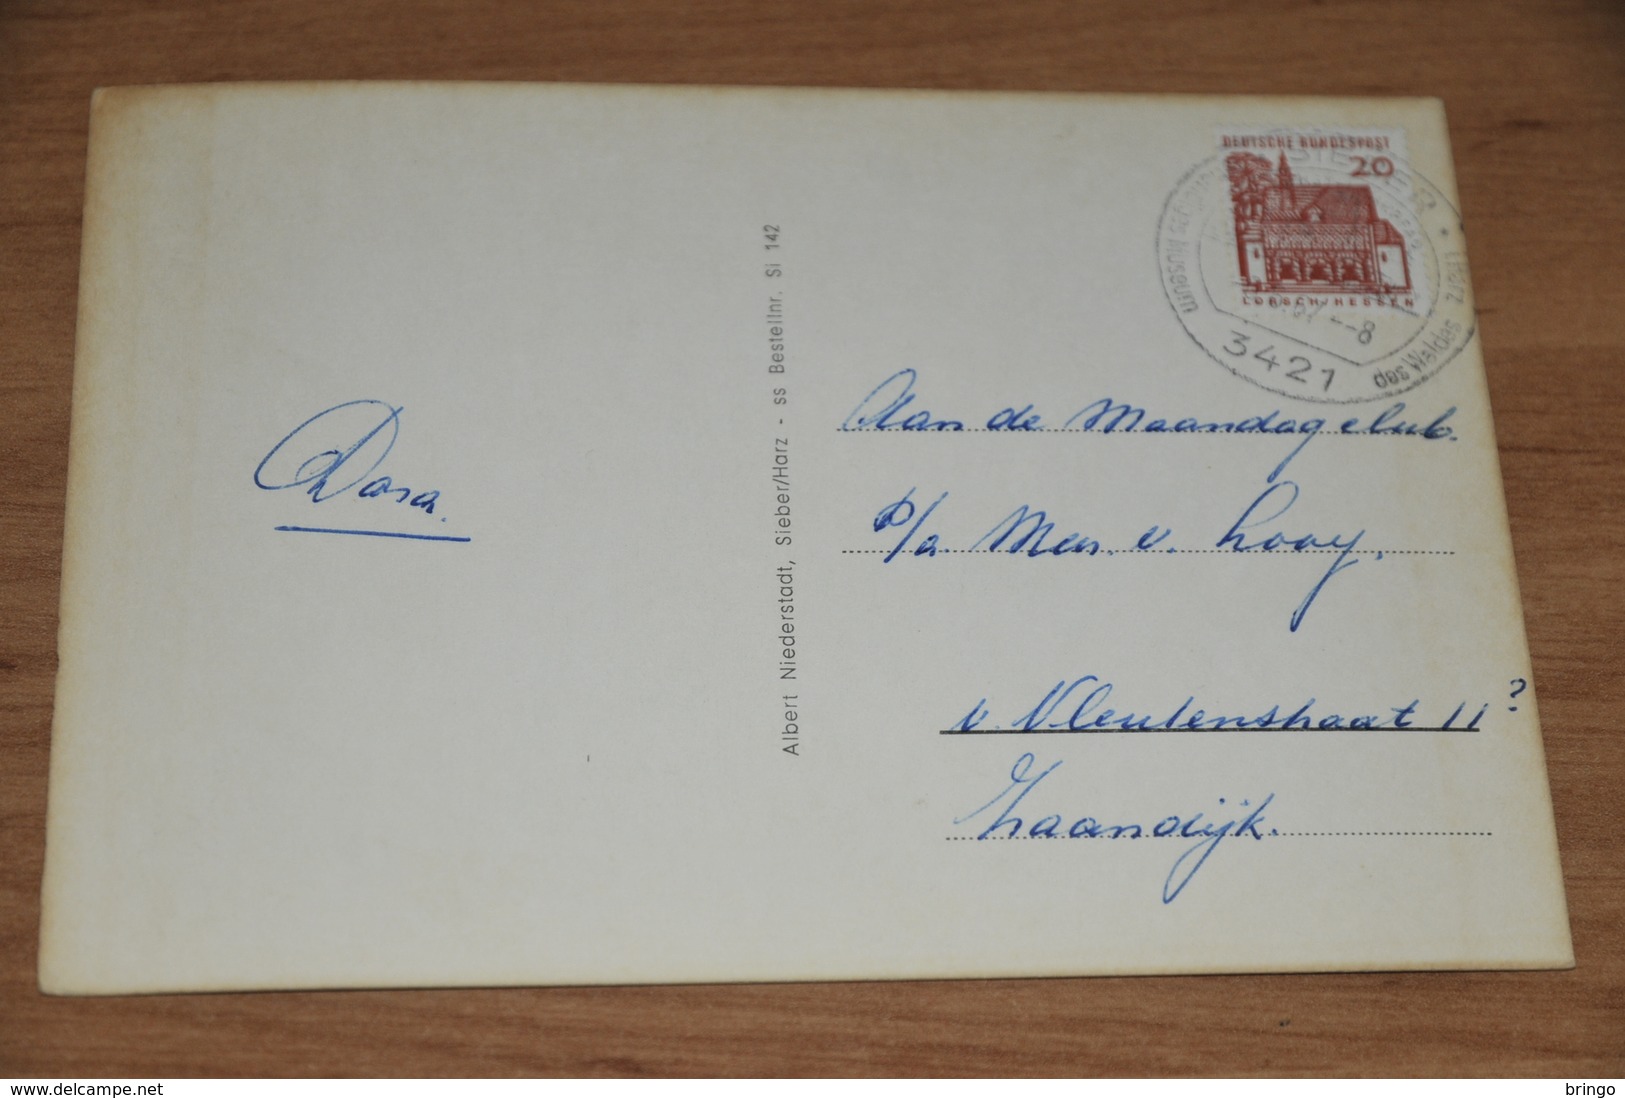 DEUTSCHE BUNDESPOST
20
LORSCH/HESSEN
des Museum
Tierz
des Waldes
3421
-8
Dora.
Albert Niederstadt, Sieber/Harz - ss Bestellnr. Si 142
Aan de Maandagclub.
p/a. Mevr. v. Looy.
v. Vleutenstraat 11?
Zaandijk.
delcampe.net
bringo